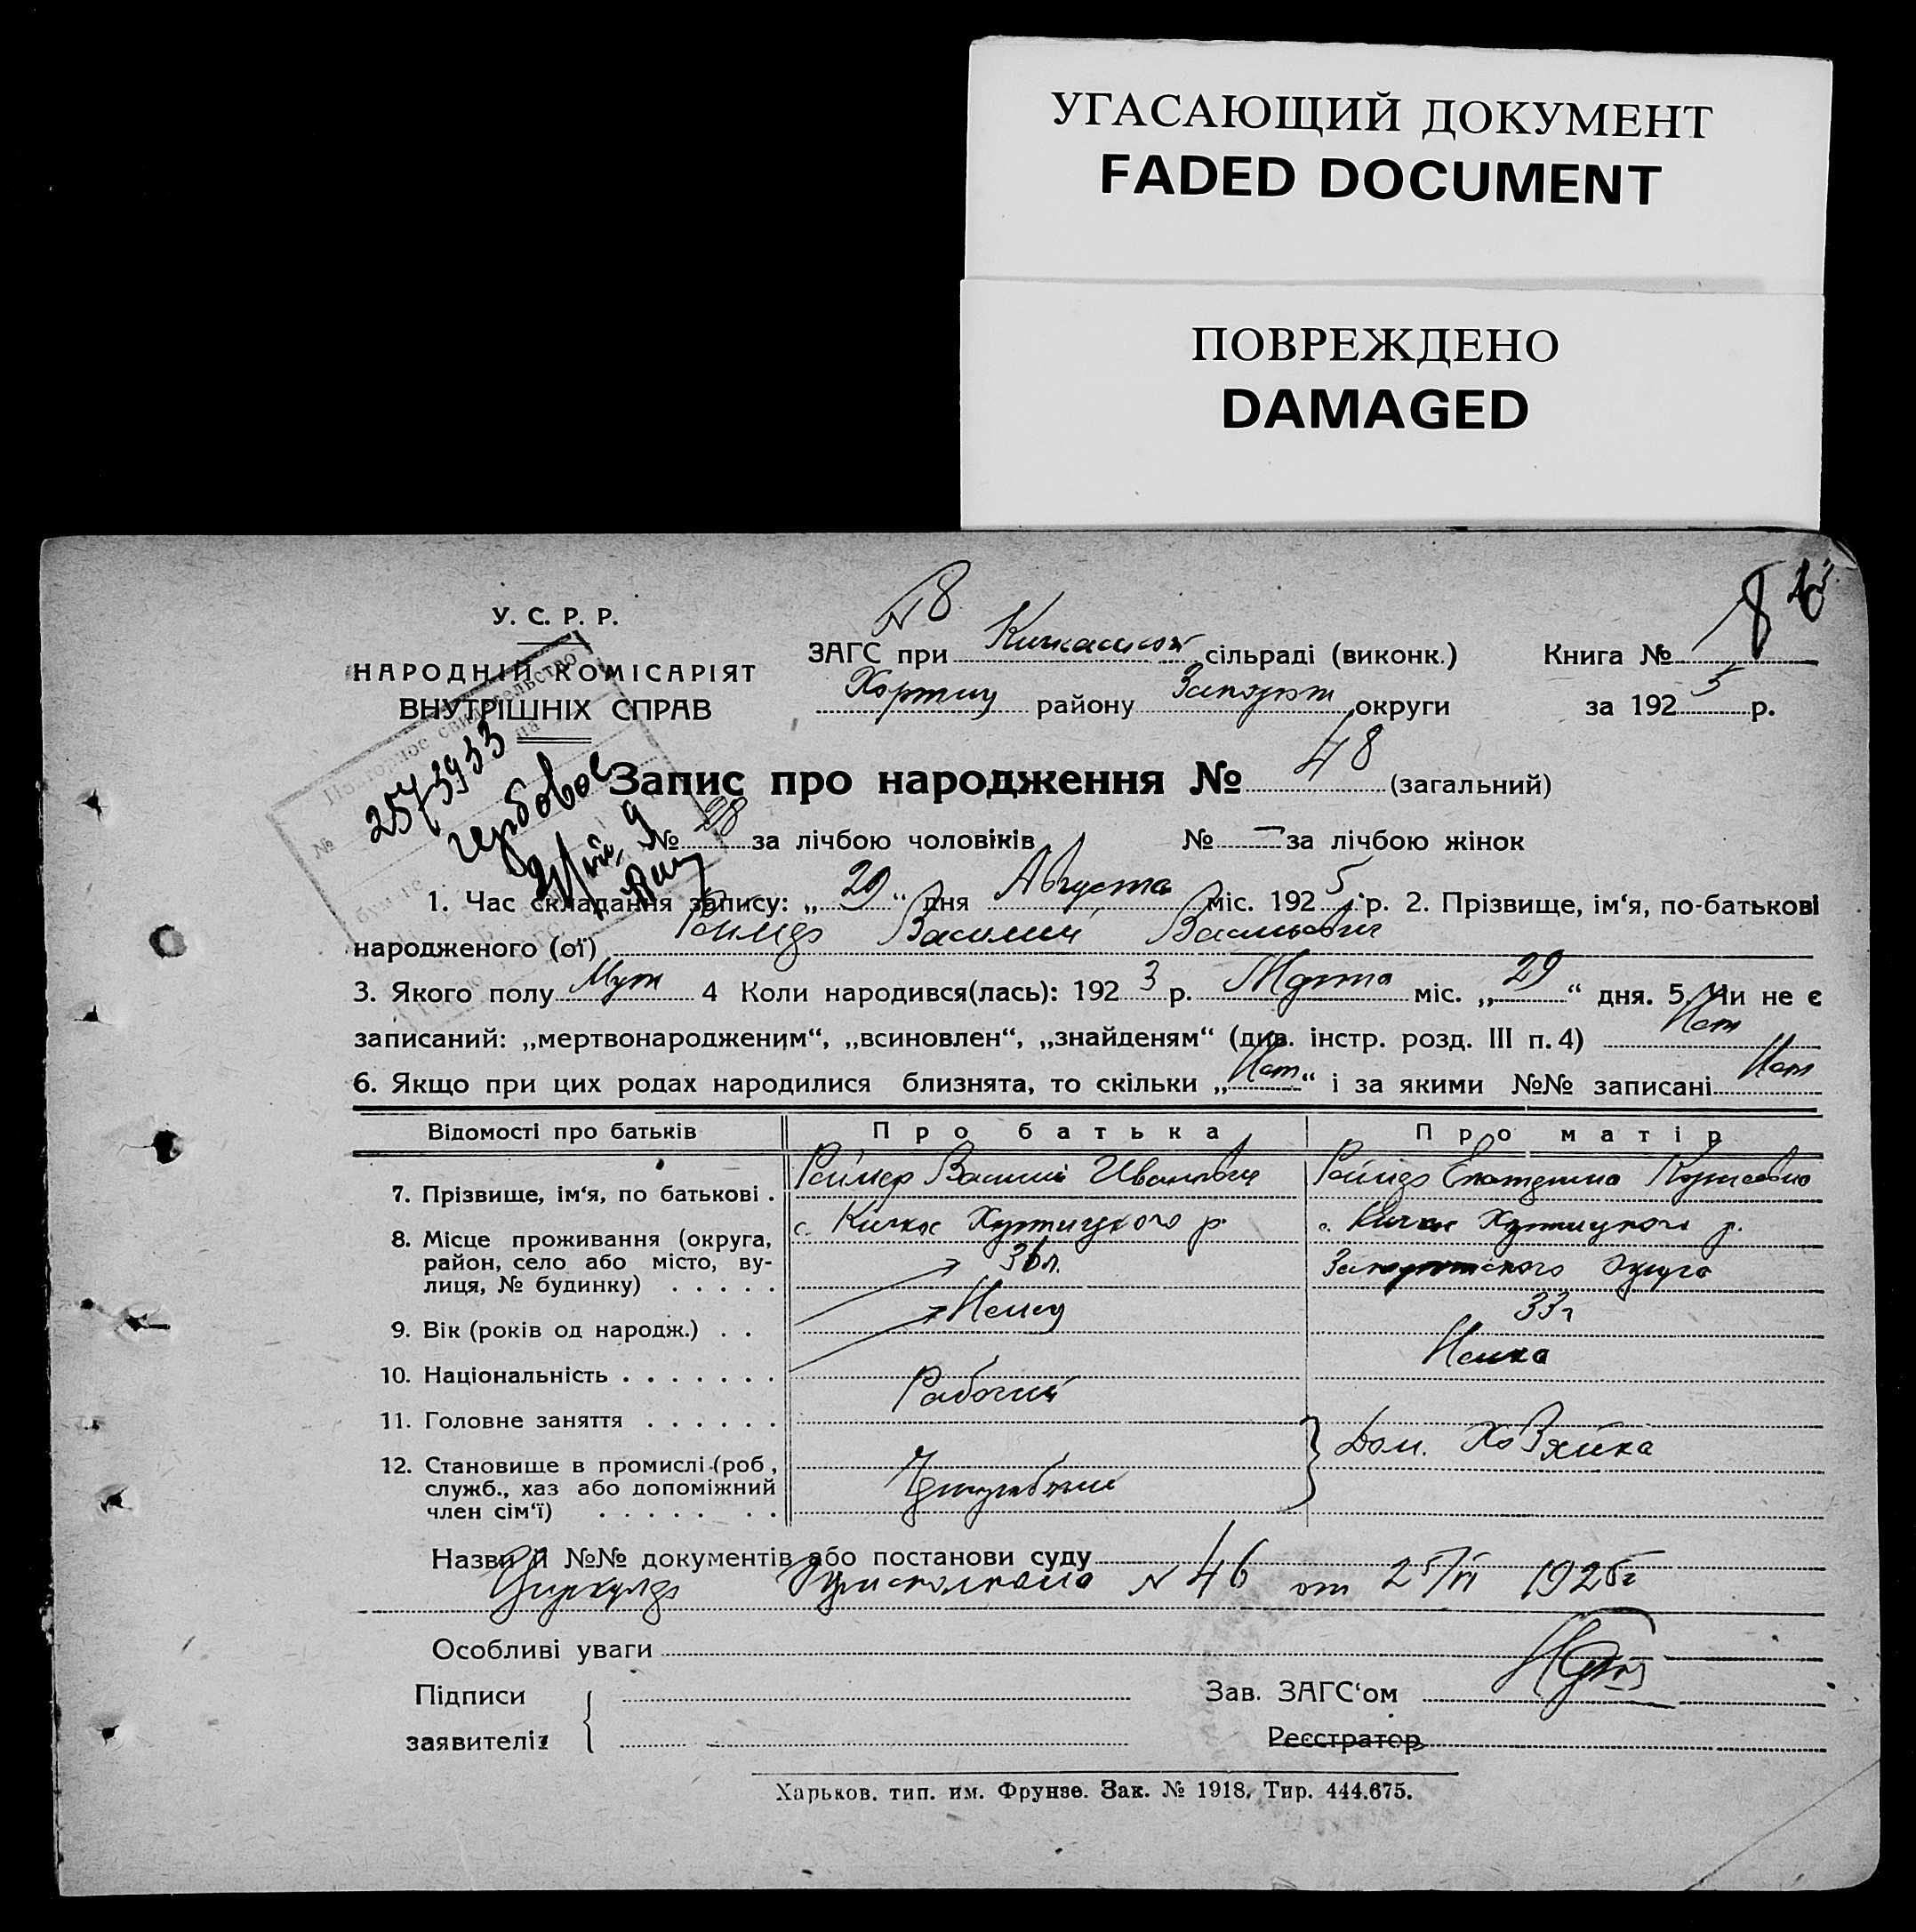 УГАСАЮЩИЙ ДОКУМЕНТ
FADED DOCUMENT
ПОВРЕЖДЕНО
DAMAGED
У. С. Р. Р.
НАРОДНІЙ КОМІСАРІЯТ
ВНУТРІШНІХ СПРАВ
N 8
ЗАГС при Кичкасской сільраді (виконк.) Книга № 8
Хортиц району Запорож округи за 1925 р.
Повторное свидетельство
на
№ 2573933
гербовое
Запис про народження № 48 (загальний)
№ 28 за лічбою чоловіків № — за лічбою жінок
1. Час складання запису: „29“ дня Августа міс. 1925 р. 2. Прізвище, ім‘я, по-батькові
народженого (ої) Реймер Василий Васильевич
3. Якого полу Муж 4 Коли народився(лась): 1923 р. Марта міс. „29“ дня. 5. Чи не є
записаний: „мертвонародженим“, „всиновлен“, „знайденям“ (див. інстр. розд. III п. 4) Нет
6. Якщо при цих родах народилися близнята, то скільки „Нет“ і за якими №№ записані Нет
Відомості про батьків Про батька Про матір
7. Прізвище, ім‘я, по батькові . Реймер Василий Иванович Реймер Екатерина Корнеевна
8. Місце проживання (округа, с. Кичкас Хортицкого р. с. Кичкас Хортицкого р.
район, село або місто, ву-
лиця, № будинку) . . . . . 36 л. Запорожского округа
9. Вік (років од народж.) . . Немец 33 г
10. Національність . . . . . . . Немка
11. Головне заняття . . . . . . Рабочий
12. Становище в промислі (роб, Дом. Хозяйка
служб., хаз або допоміжний
член сім‘ї) . . . . . . .
Назви й №№ документів або постанови суду
Циркуляр N 46 от 25/VI 1925 г
Особливі уваги
Підписи
заявителів
Зав. ЗАГС‘ом
Реєстратор
Харьков. тип. им. Фрунзе. Зак. № 1918. Тир. 444.675.